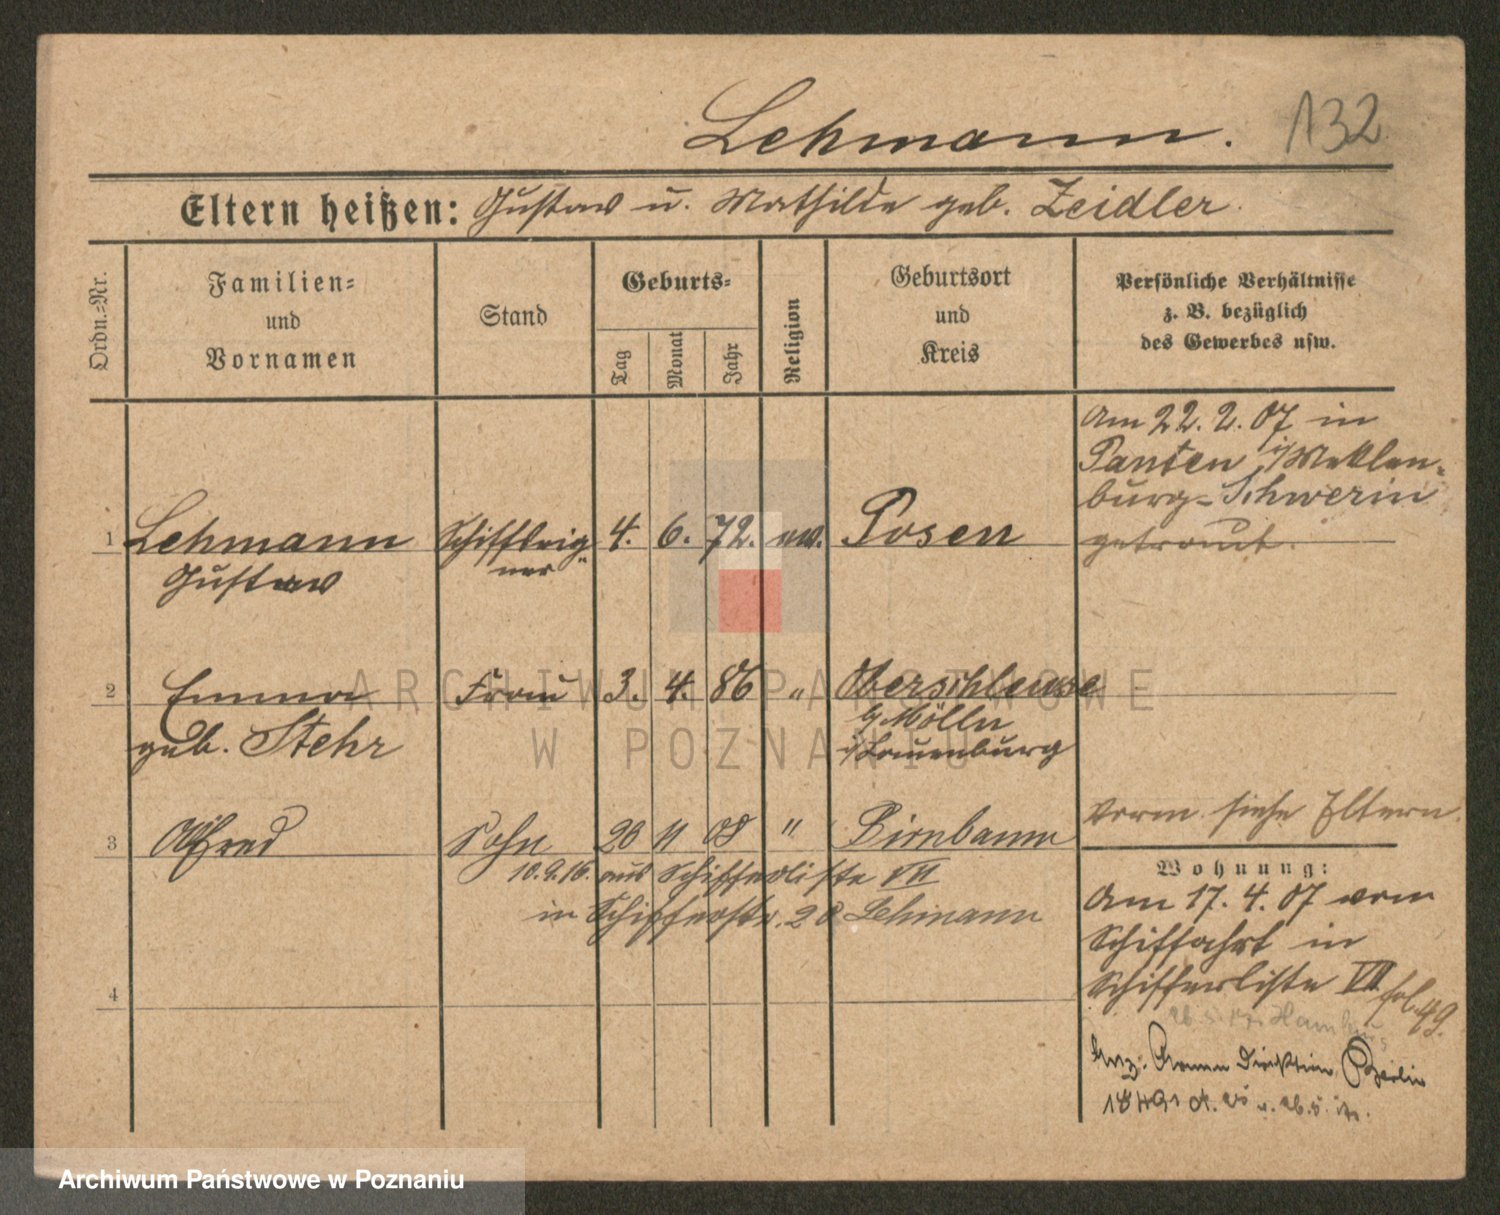 Lehmann.
132
Eltern heißen: Gustav u. Mathilde geb. Zeidler.
Ordn.-Nr.
Familien-
und
Vornamen
Stand
Geburts-
Tag
Monat
Jahr
Religion
Geburtsort
und
Kreis
Persönliche Verhältnisse
z. B. bezüglich
des Gewerbes usw.
Am 22. 2. 07 in
Panten i/Meklen-
burg-Schwerin
getraut.
1 Lehmann Schiffseig- 4. 6. 72. ev. Posen
Gustav ner
2 Emma Frau 3. 4. 86 " Oberschleuse
geb. Stehr b/Mölln
i/Lauenburg
3 Alfred Sohn 20 11 08 " Birnbaum
Verm. siehe Eltern.
10.9.16. aus Schifferliste VII
in Schifferstr. 20 Lehmann
Wohnung:
Am 17. 4. 07 vom
Schiffahrt in
Schifferliste VII fol. 49.
4
26.5.17. Hamburg
Berlin
ARCHIWUM PAŃSTWOWE
W POZNANIU
Archiwum Państwowe w Poznaniu